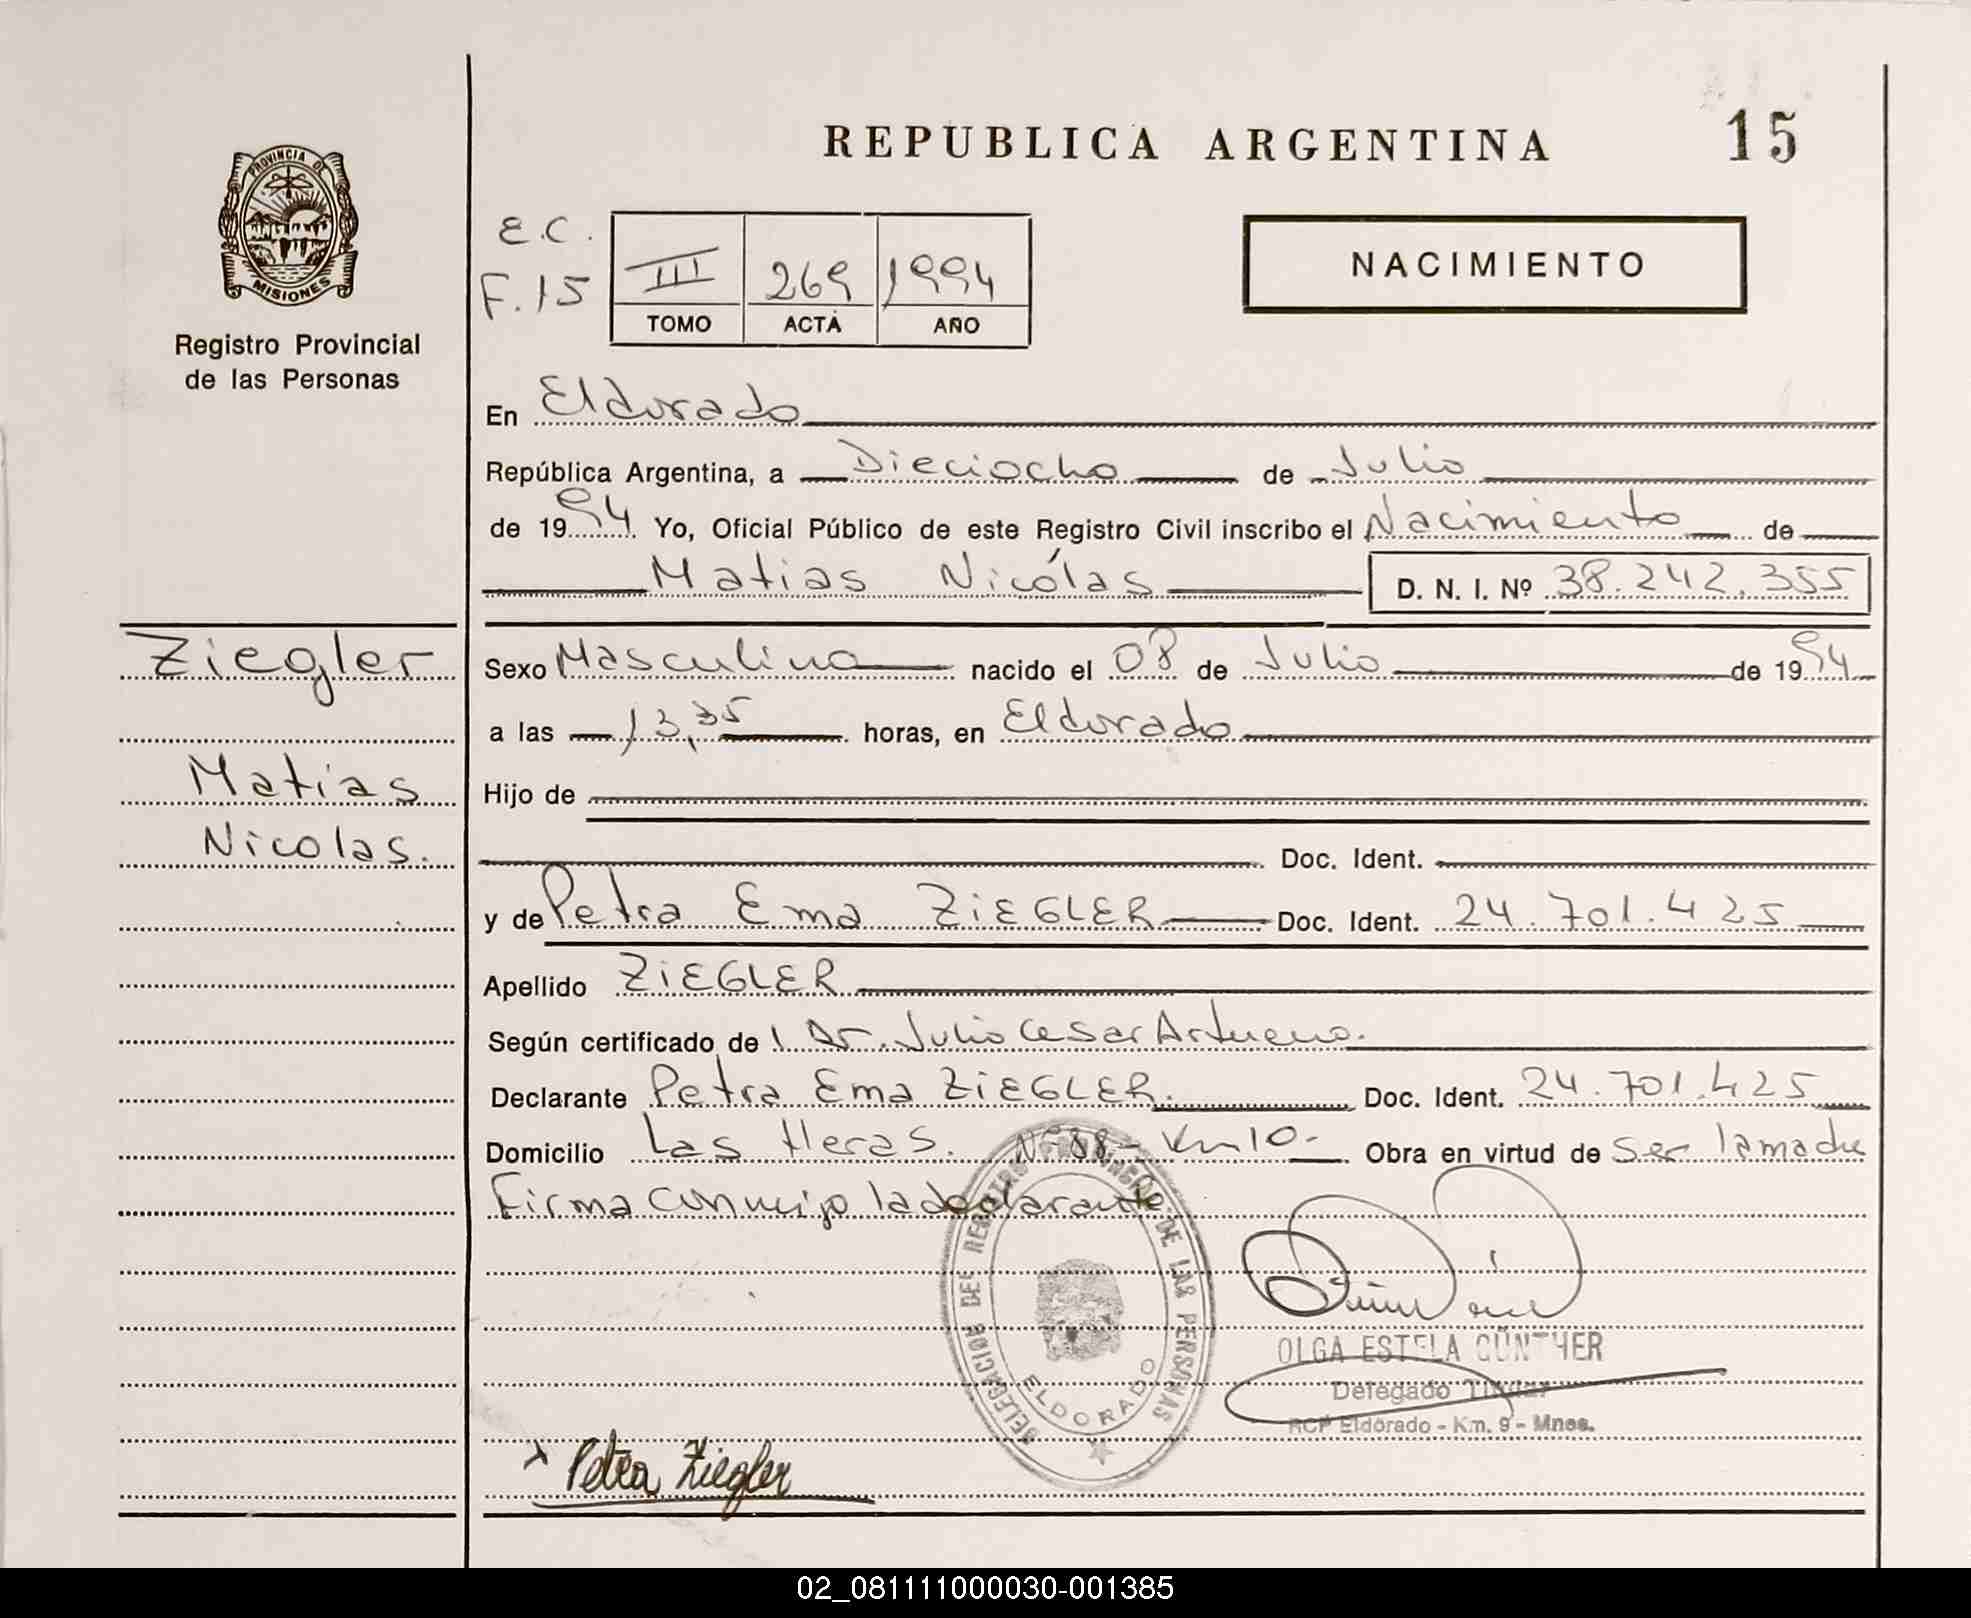 REPUBLICA ARGENTINA 15
PROVINCIA DE
MISIONES
Registro Provincial
de las Personas
E.C.
F.15
III 269 1994
TOMO ACTA AÑO
NACIMIENTO
En Eldorado
República Argentina, a Dieciocho de Julio
de 1994 Yo, Oficial Público de este Registro Civil inscribo el Nacimiento de
Matias Nicólas D. N. I. Nº 38.242.355
Ziegler
Matias
Nicolas.
Sexo Masculino nacido el 08 de Julio de 1994
a las 13,35 horas, en Eldorado
Hijo de
Doc. Ident.
y de Petra Ema ZiEGLER Doc. Ident. 24.701.425
Apellido ZiEGLER
Según certificado de Dr. Julio Cesar
Declarante Petra Ema ZiEGLER. Doc. Ident. 24.701.425
Domicilio Las Heras. Nº 88 - Km 10- Obra en virtud de ser la madre
Firma conmigo la declarante
DELEGACION DEL REGISTRO PROVINCIAL DE LAS PERSONAS
ELDORADO
OLGA ESTELA GÜNTHER
Delegado Titular
RCP Eldorado - Km. 9 - Mnes.
x Petra Ziegler
02_081111000030-001385